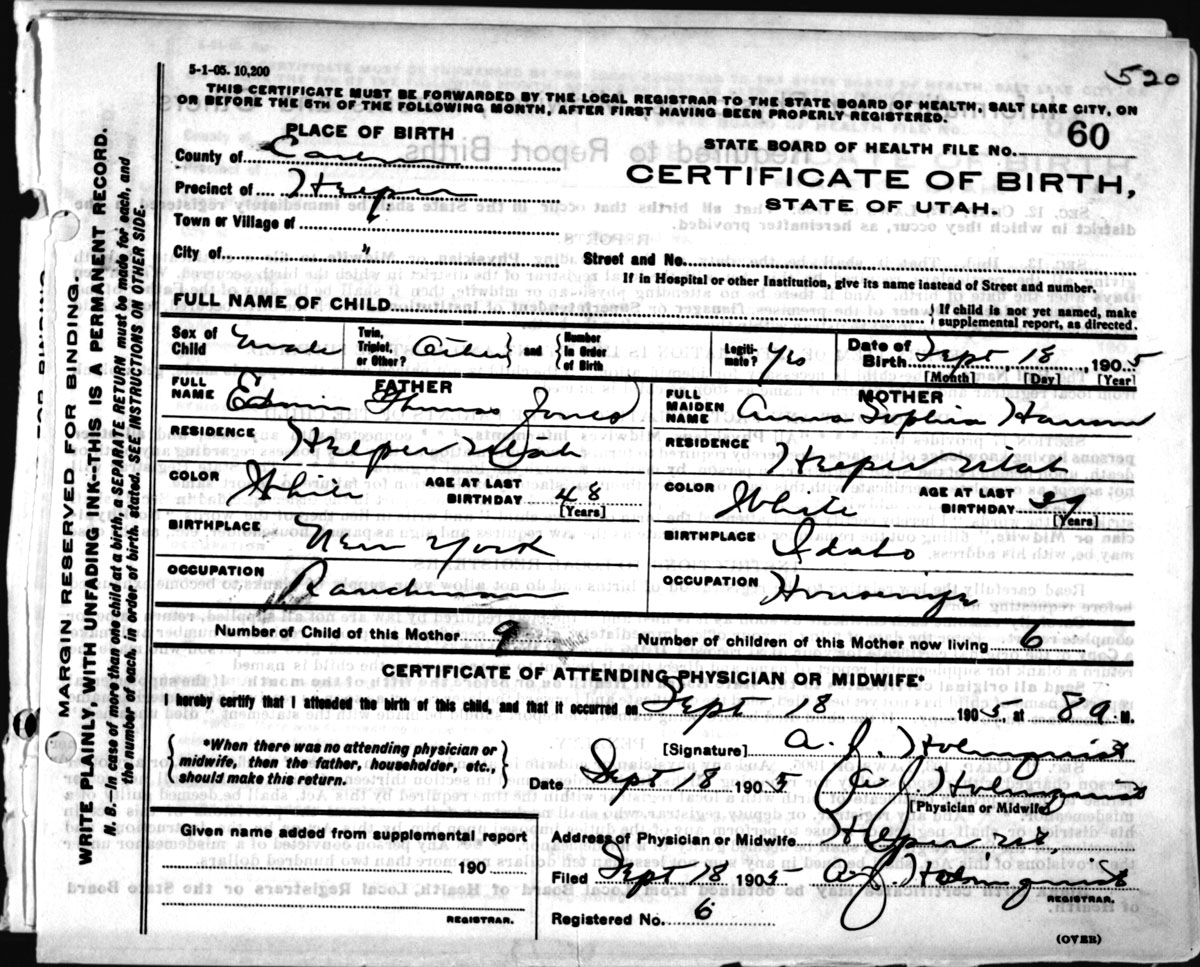 520
5-1-05. 10,200
THIS CERTIFICATE MUST BE FORWARDED BY THE LOCAL REGISTRAR TO THE STATE BOARD OF HEALTH, SALT LAKE CITY, ON
OR BEFORE THE 5TH OF THE FOLLOWING MONTH, AFTER FIRST HAVING BEEN PROPERLY REGISTERED.
PLACE OF BIRTH
STATE BOARD OF HEALTH FILE NO. 60
County of
CERTIFICATE OF BIRTH,
Precinct of
STATE OF UTAH.
Town or Village of
City of "
Street and No.
If in Hospital or other Institution, give its name instead of Street and number.
FULL NAME OF CHILD
{ If child is not yet named, make
supplemental report, as directed.
Sex of Child Male
Twin, Triplet, or Other? } and { Number in Order of Birth
Legiti- mate? Yes
Date of Birth Sept 18 1905
[Month] [Day] [Year]
FATHER
MOTHER
FULL NAME Edwin Thomas Jones
FULL MAIDEN NAME Anna Sophia
RESIDENCE Utah
RESIDENCE Utah
COLOR White AGE AT LAST BIRTHDAY 48 [Years]
COLOR White AGE AT LAST BIRTHDAY [Years]
BIRTHPLACE New York
BIRTHPLACE Idaho
OCCUPATION Ranchman
OCCUPATION
Number of Child of this Mother 9
Number of children of this Mother now living 6
CERTIFICATE OF ATTENDING PHYSICIAN OR MIDWIFE*
I hereby certify that I attended the birth of this child, and that it occurred on Sept 18 1905, at 8 a. M.
{ *When there was no attending physician or
midwife, then the father, householder, etc.,
should make this return. }
[Signature] A. J. Holmquist
Date Sept 18 1905
A. J. Holmquist
[Physician or Midwife]
Given name added from supplemental report
Address of Physician or Midwife
190
Filed Sept 18 1905 A J Holmquist
REGISTRAR.
REGISTRAR.
Registered No. 6
(OVER)
MARGIN RESERVED FOR BINDING.
WRITE PLAINLY, WITH UNFADING INK--THIS IS A PERMANENT RECORD.
N. B.—In case of more than one child at a birth, a SEPARATE RETURN must be made for each, and
the number of each, in order of birth, stated. SEE INSTRUCTIONS ON OTHER SIDE.